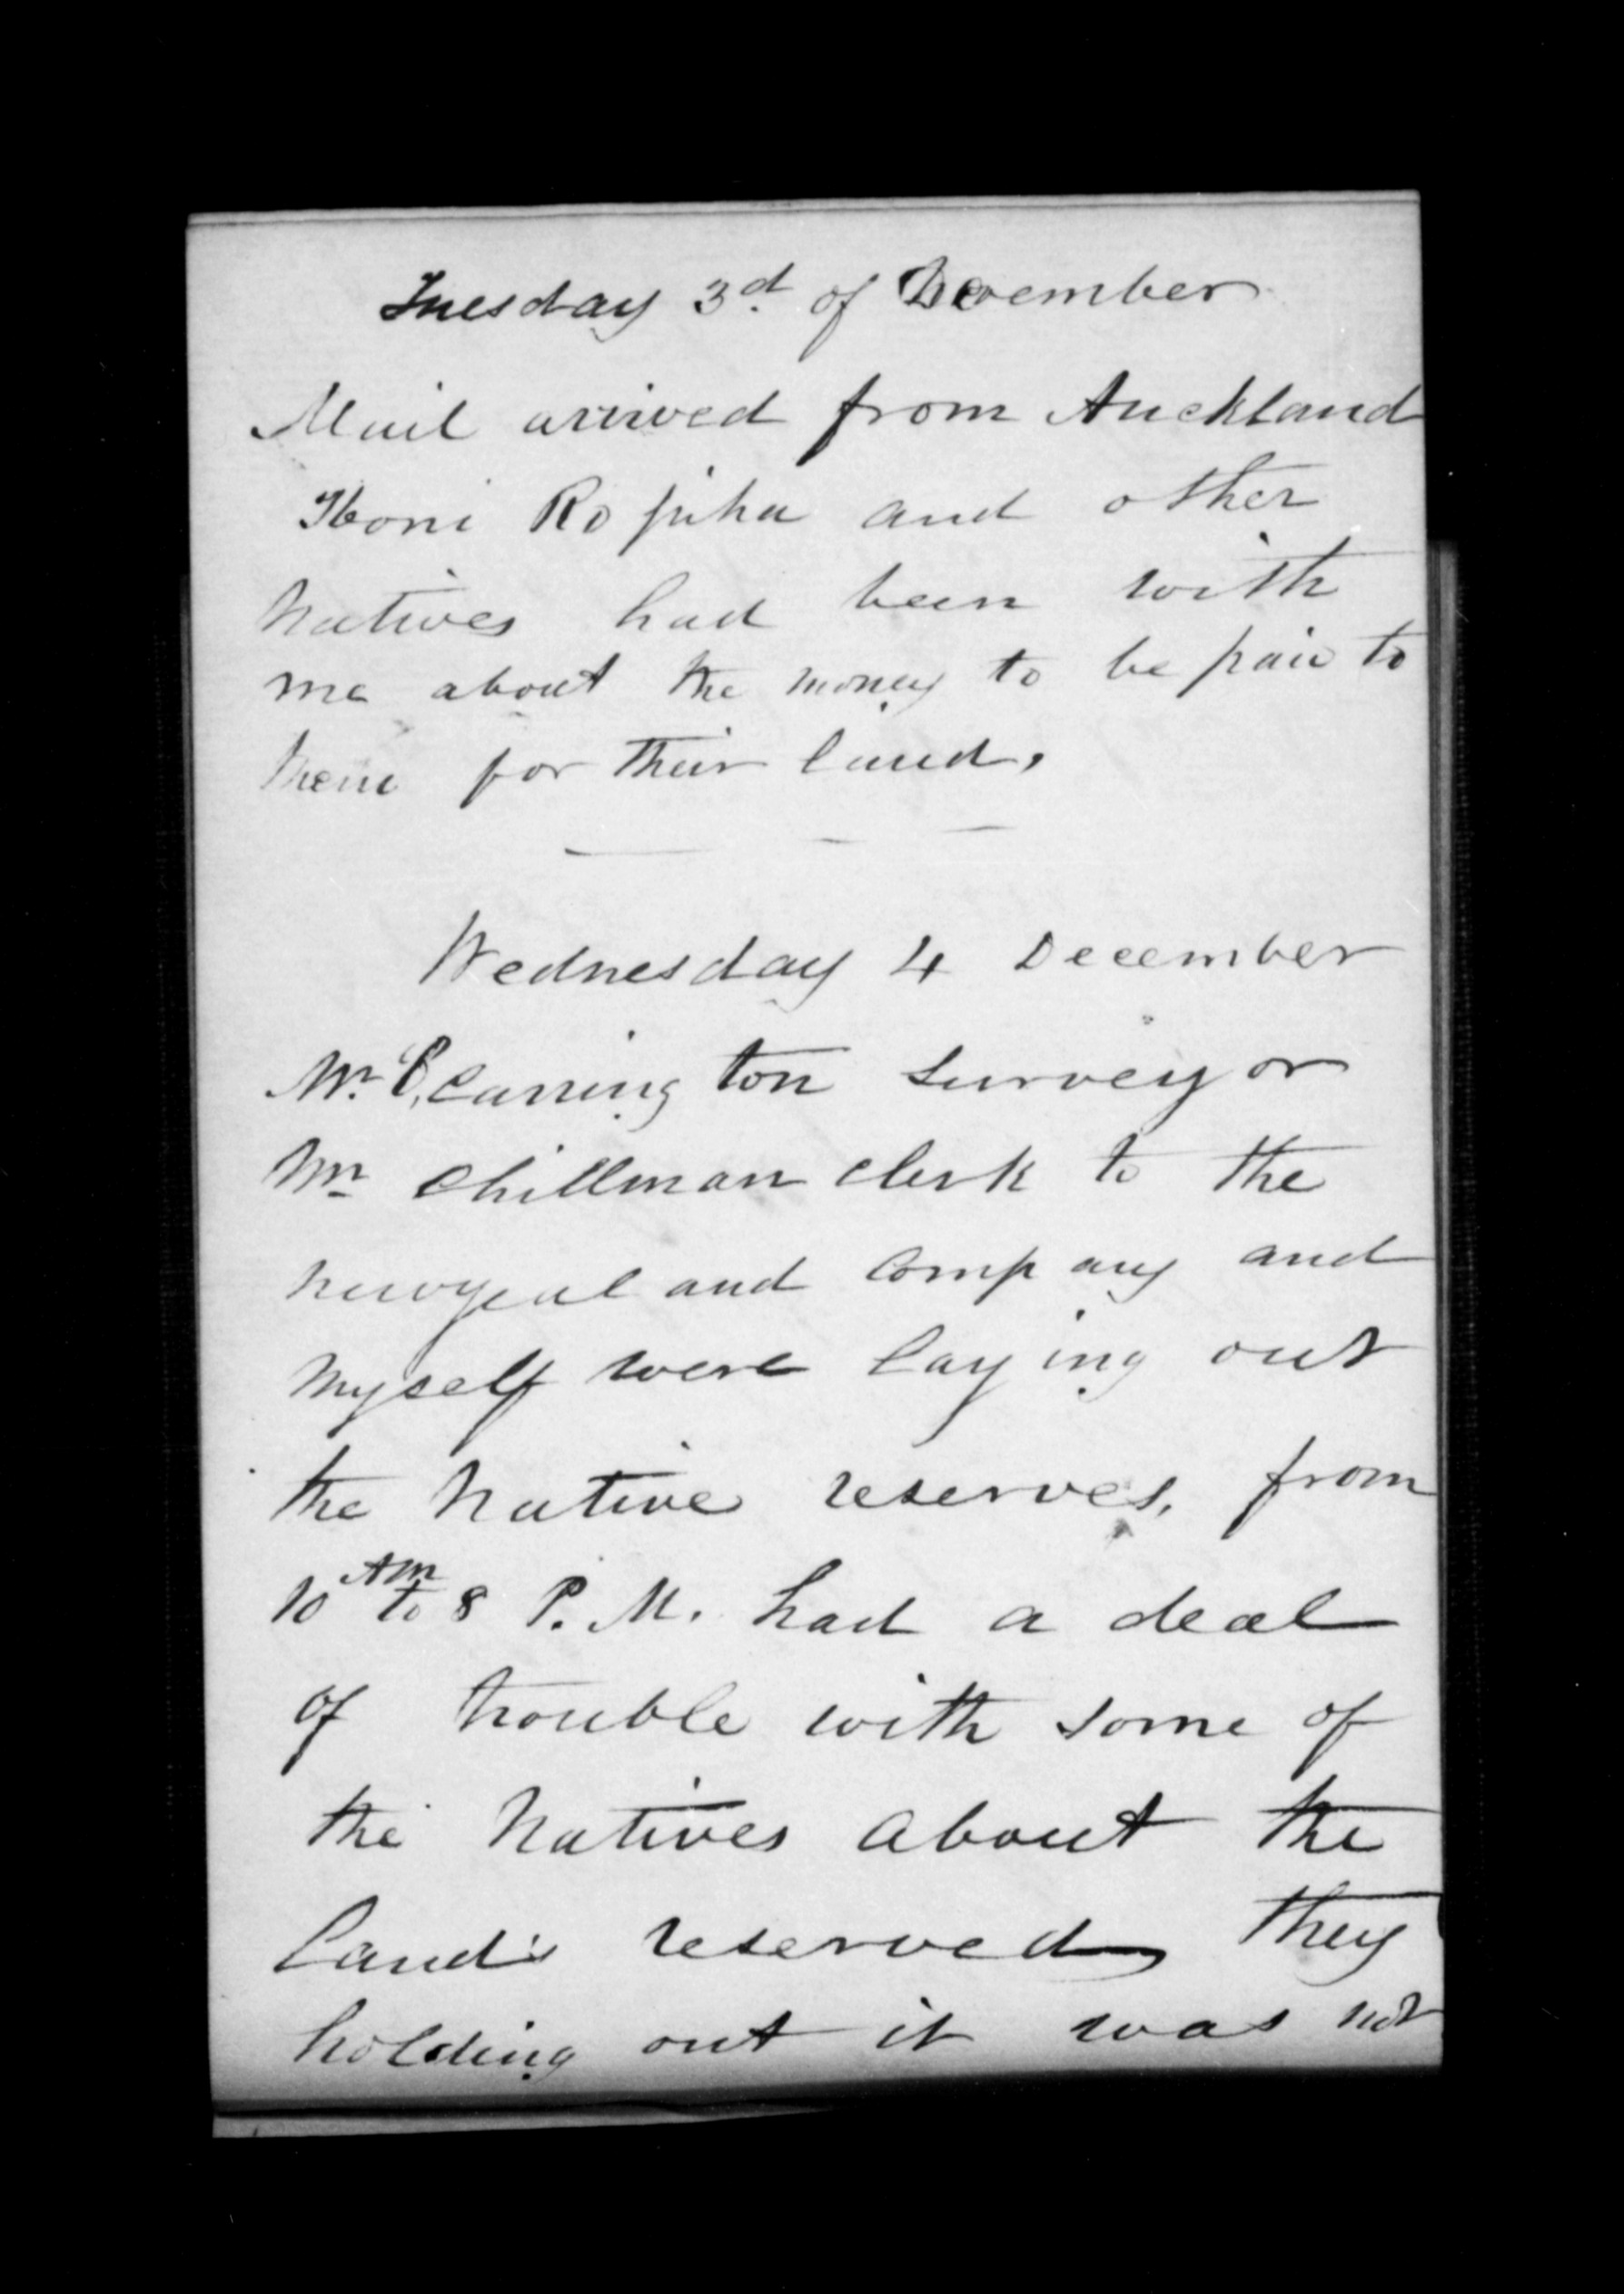 Tuesday 3d. of December
Mail arrived from Auckland
Honi Ropiha and other
Natives had been with
me about the money to be paid to
them for their land.
Wednesday 4 December
Mr. Carrington Surveyor
Mr Chillman clerk to the
Newzealand Company and
myself were laying out
the Native reserves, from
10 AM to 8 P.M. had a deal
of trouble with some of
the Natives about the
Lands reserved, they
holding out it was not